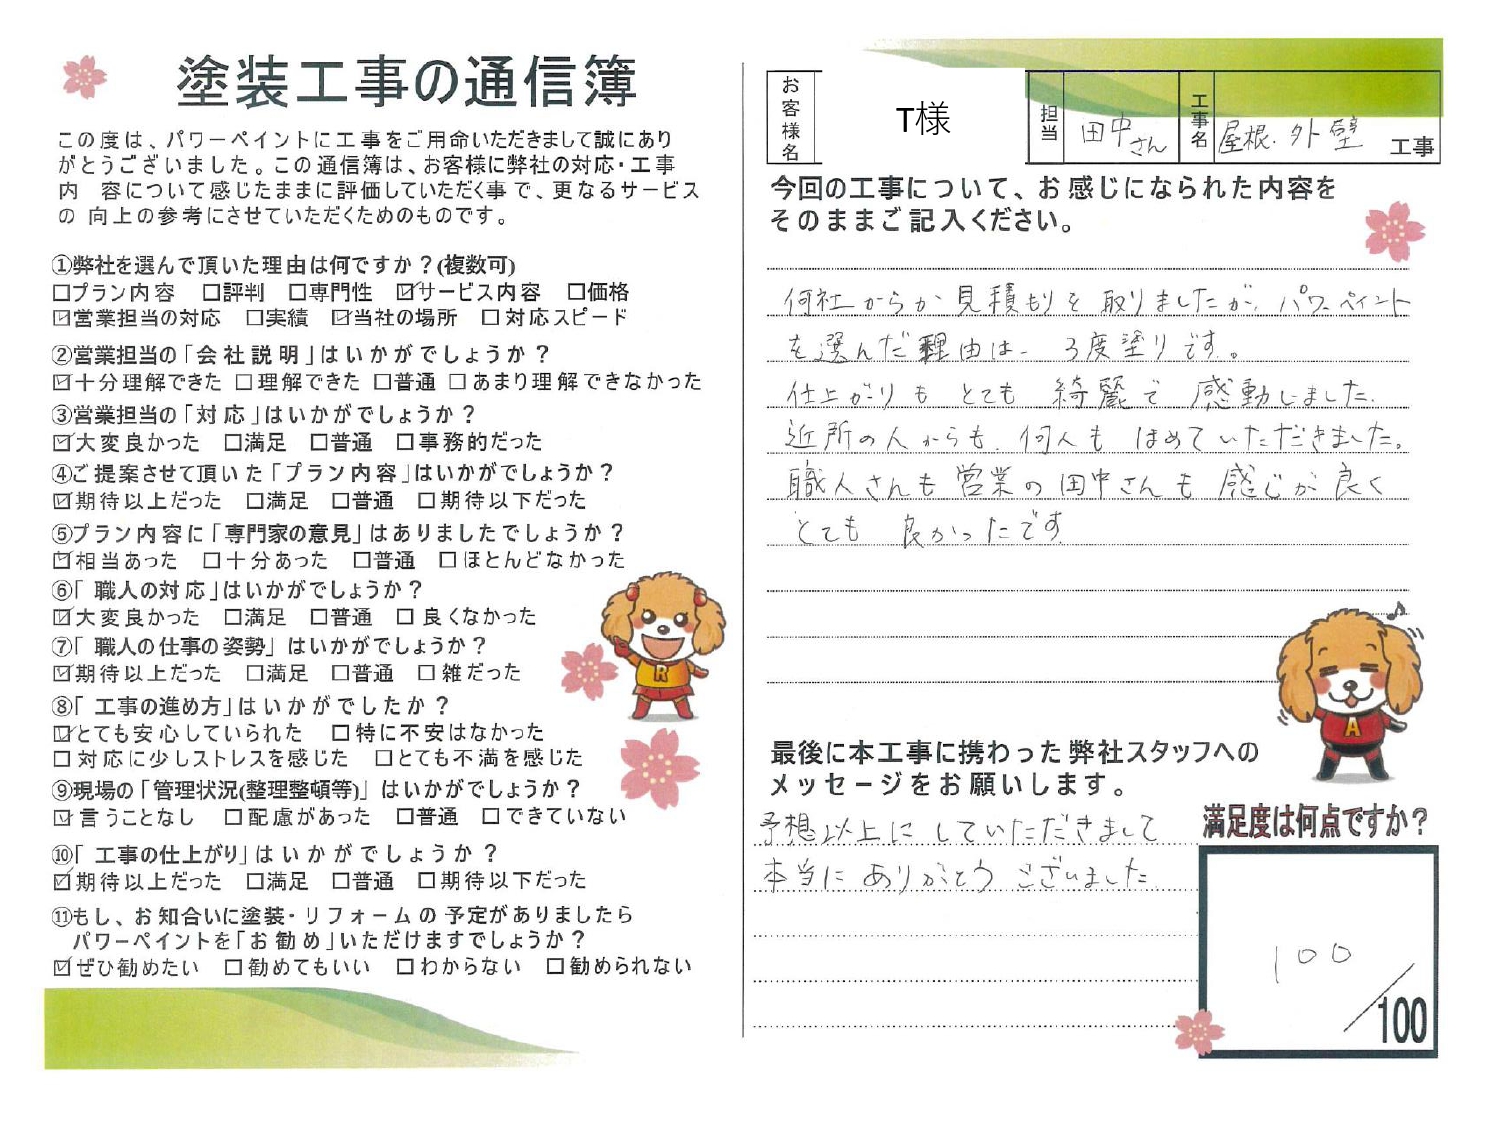 塗装工事の通信簿
この度は、パワーペイントに工事をご用命いただきまして誠にあり
がとうございました。この通信簿は、お客様に弊社の対応・工事
内 容について感じたままに評価していただく事で、更なるサービス
の 向上の参考にさせていただくためのものです。
①弊社を選んで頂いた理由は何ですか？(複数可)
□プラン内容 □評判 □専門性 ☑サービス内容 □価格
☑営業担当の対応 □実績 ☑当社の場所 □対応スピード
②営業担当の「会社説明」はいかがでしょうか？
☑十分理解できた □理解できた □普通 □あまり理解できなかった
③営業担当の「対応」はいかがでしょうか？
☑大変良かった □満足 □普通 □事務的だった
④ご提案させて頂いた「プラン内容」はいかがでしょうか？
☑期待以上だった □満足 □普通 □期待以下だった
⑤プラン内容に「専門家の意見」はありましたでしょうか？
☑相当あった □十分あった □普通 □ほとんどなかった
⑥「職人の対応」はいかがでしょうか？
☑大変良かった □満足 □普通 □良くなかった
⑦「職人の仕事の姿勢」はいかがでしょうか？
☑期待以上だった □満足 □普通 □雑だった
⑧「工事の進め方」はいかがでしたか？
☑とても安心していられた □特に不安はなかった
□対応に少しストレスを感じた □とても不満を感じた
⑨現場の「管理状況(整理整頓等)」はいかがでしょうか？
☑言うことなし □配慮があった □普通 □できていない
⑩「工事の仕上がり」はいかがでしょうか？
☑期待以上だった □満足 □普通 □期待以下だった
⑪もし、お知合いに塗装・リフォームの予定がありましたら
パワーペイントを「お勧め」いただけますでしょうか？
☑ぜひ勧めたい □勧めてもいい □わからない □勧められない
R
お客様名 T様 担当 田中さん 工事名 屋根.外壁 工事
今回の工事について、お感じになられた内容を
そのままご記入ください。
何社からか見積もりを取りましたが、パワーペイント
を選んだ理由は、3度塗りです。
仕上がりもとても綺麗で感動しました.
近所の人からも、何人もほめていただきました。
職人さんも営業の田中さんも感じが良く
とても良かったです
A
最後に本工事に携わった弊社スタッフへの
メッセージをお願いします。
予想以上にしていただきまして
本当にありがとうございました
満足度は何点ですか？
100
/100